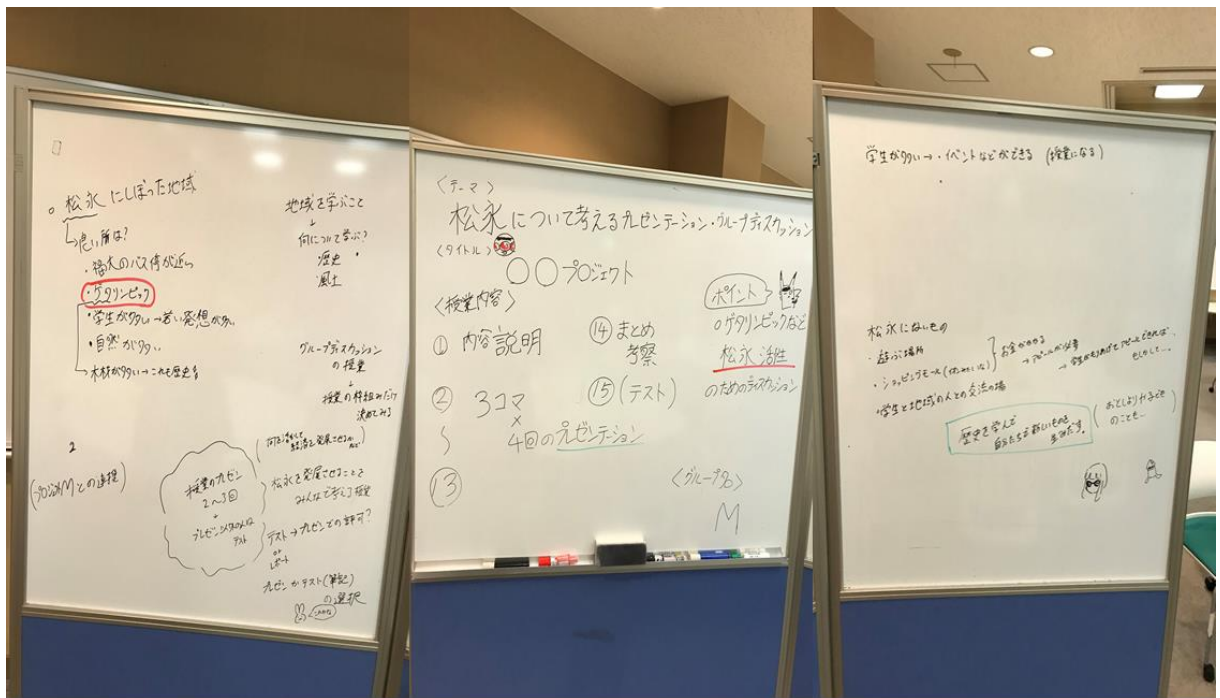 。松永にしぼった地域
→良い所は?
・福大のバス停が近い
・ゲタリンピック
・学生が多い→若い発想が多い
・自然が多い
→木材が多い→これも歴史
地域を学ぶこと
↓
何について学ぶ?
歴史
風土
グループディスカッション
の授業
↓
授業の枠組みだけ
決めてみる
2
(プロジェクトMとの連携)
授業のプレゼン
2〜3回
+
テスト
松永を発展させることを
みんなで考える授業
テスト→プレゼンでの評可?
or
レポート
プレゼンかテスト(筆記)
の選択
<テーマ>
松永について考えるプレゼンテーション・グループディスカッション
<タイトル>
〇〇プロジェクト
<授業内容>
① 内容説明
②
〜
⑬
3コマ
×
4回のプレゼンテーション
⑭ まとめ
考察
⑮ (テスト)
ポイント
○ゲタリンピックなど
松永活性
のためのディスカッション
<グループ名>
M
学生が多い→・イベントなどができる (授業になる)
松永にないもの
・遊ぶ場所
・ショッピングモール
お金がかかる
→アピールが必要
・学生と地域の人との交流の場
歴史を学んで
自分たちで新しいものを
生みだす。
(おとしよりや子ども
のことも…